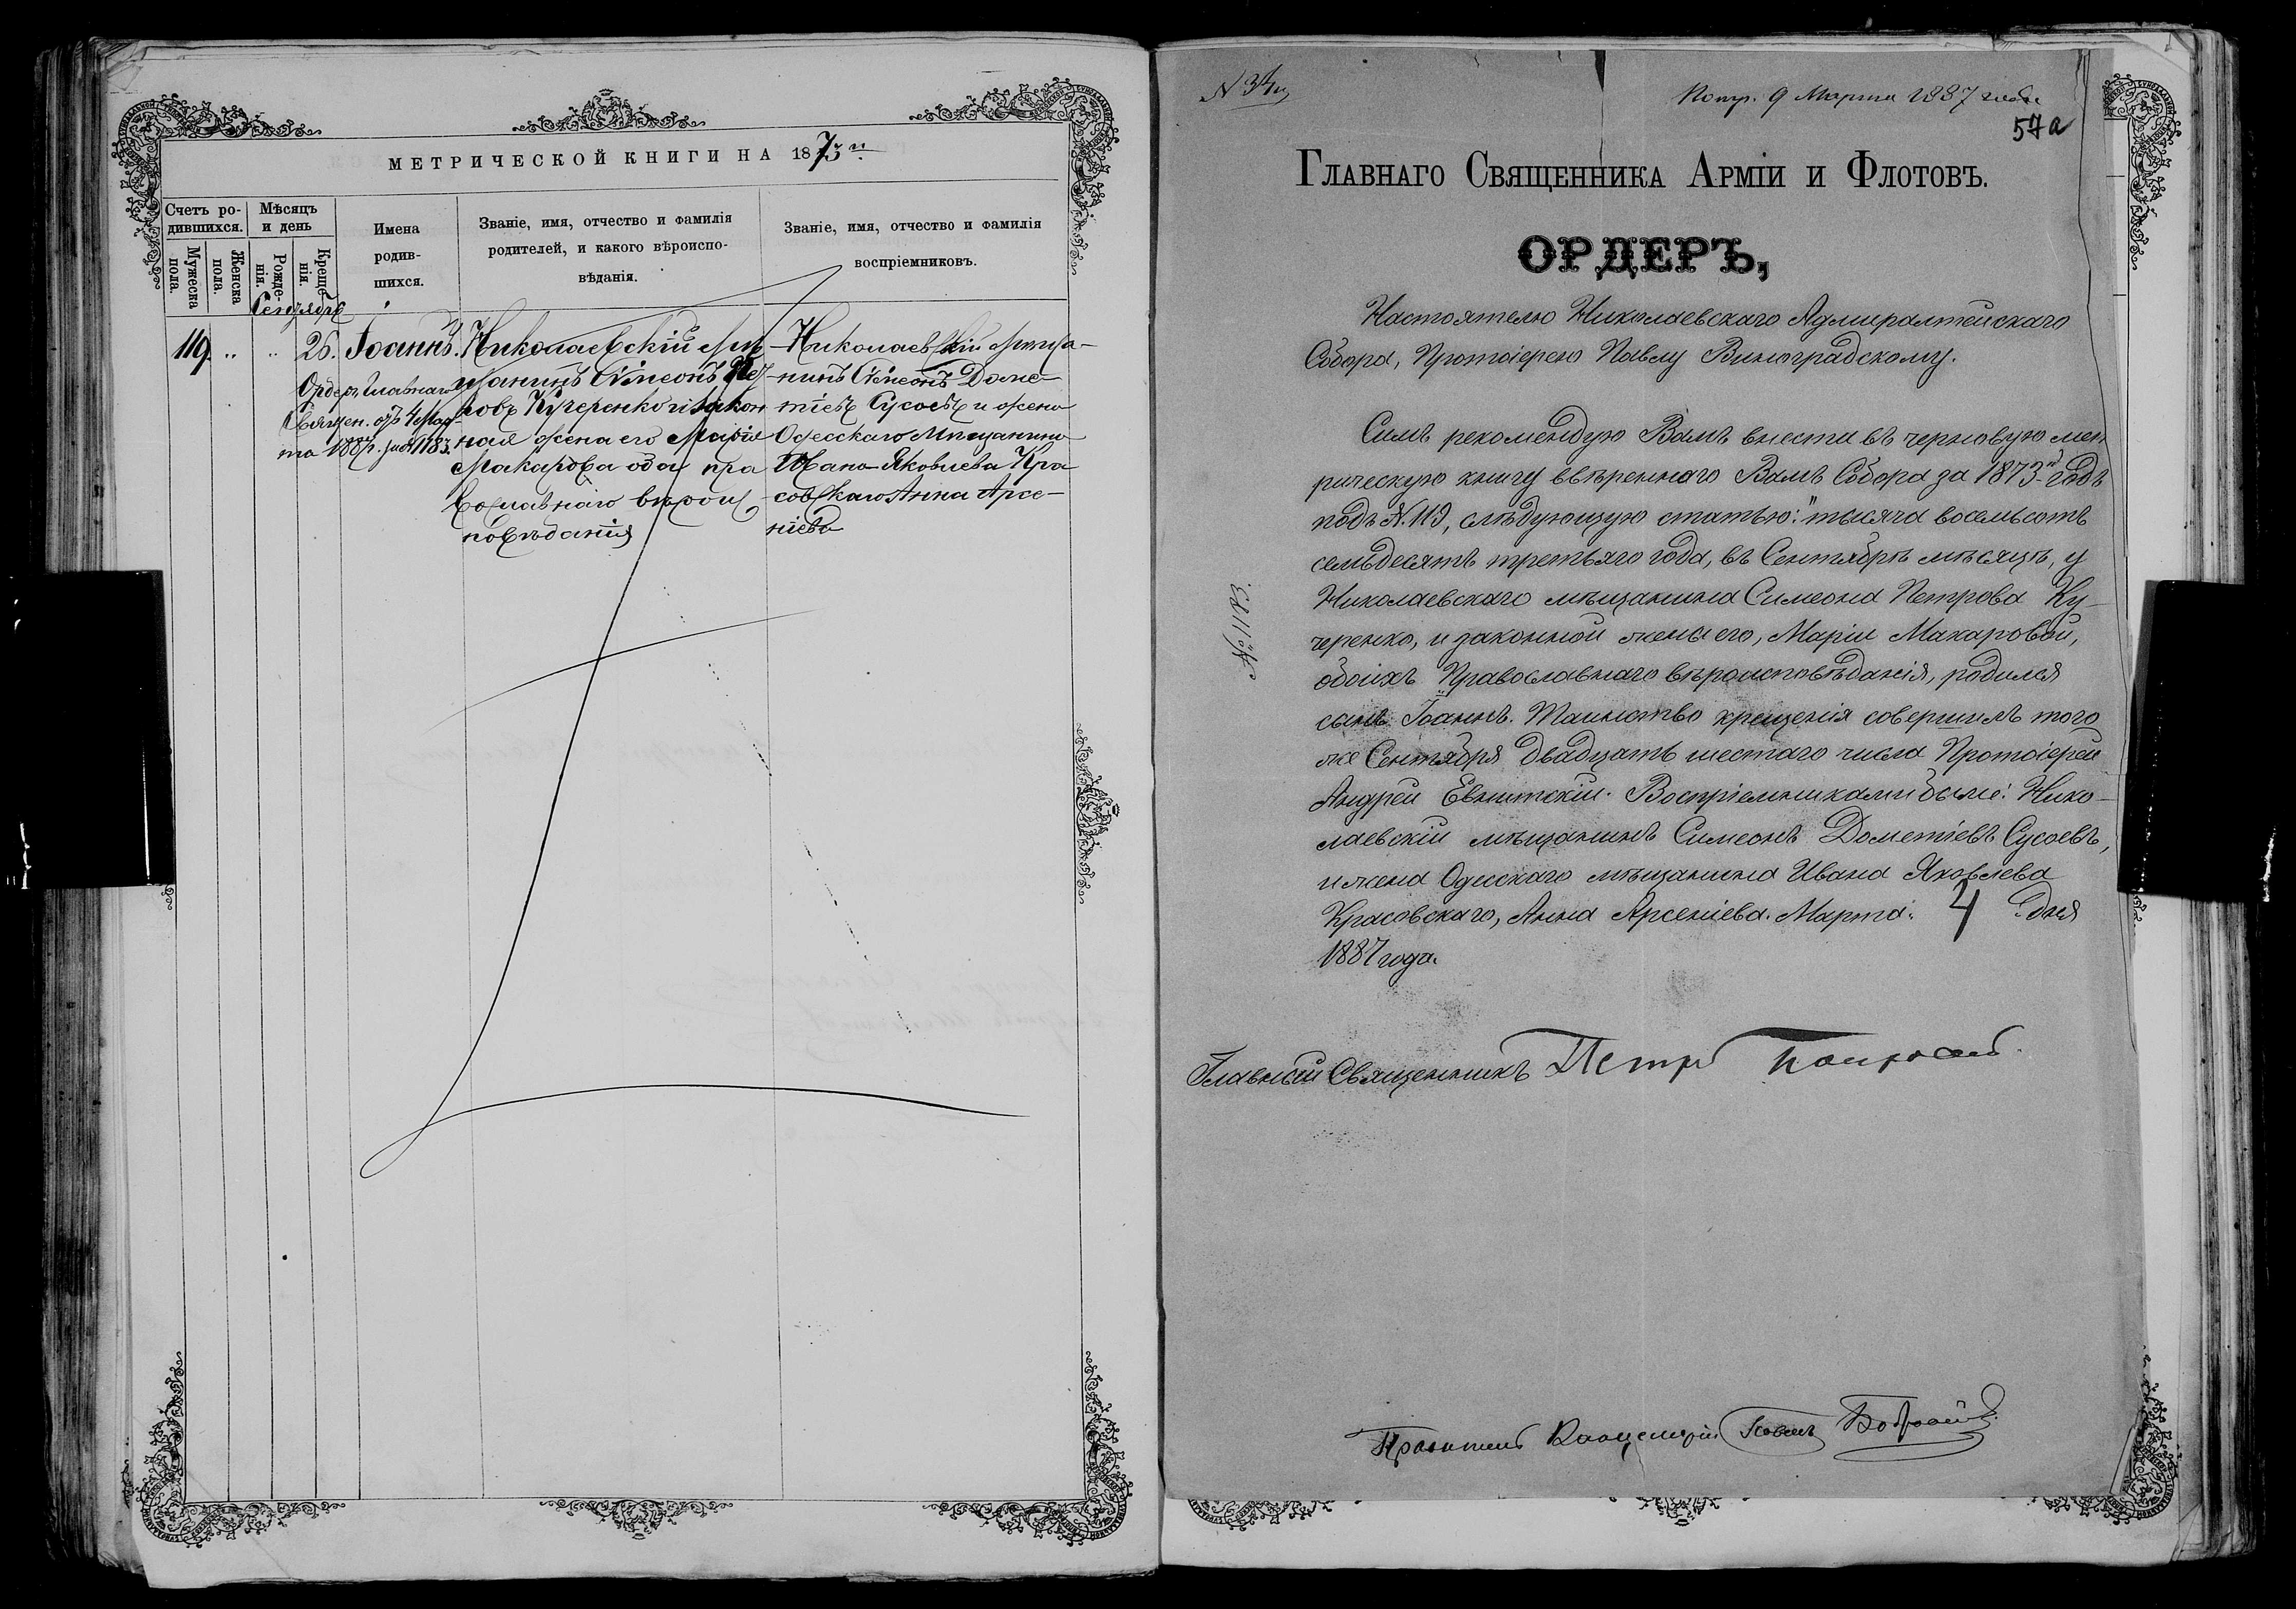 МЕТРИЧЕСКОЙ КНИГИ НА 1873 й
Счетъ ро-
дившихся.
Мужеска
пола.
Женска
пола.
Мѣсяцъ
и день
Рожде-
нія.
Креще-
нія.
Имена
родив-
шихся.
Званіе, имя, отчество и фамилія
родителей, и какого вѣроиспо-
вѣданія.
Званіе, имя, отчество и фамилія
воспріемниковъ.
Сентябрь
119. „ „ 26. Іоаннъ.
Ордеръ Главнаго
Священ. отъ 4 Мар-
та 1887 г. за № 1183.
Николаевскій мѣ
щанинъ Симеонъ Пет
ровъ Кучеренко и закон
ная жена его Марія
Макарова оба пра
вославнаго вѣроис
повѣданія
Николаевскій мѣща-
нинъ Симеонъ Доме-
тіевъ Сусоевъ и жена
Одесскаго мѣщанина
Ивана Яковлева Кра
совскаго Анна Арсе-
ніева
N 34
Пол. 9 Марта 1887 года
57а
Главнаго Священника Арміи и Флотовъ.
ОРДЕРЪ,
Настоятелю Николаевскаго Адмиралтейскаго
Собора, Протоіерею Павлу Виноградскому.
Симъ рекомендую Вамъ внести въ черновую мет
рическую книгу ввѣреннаго Вамъ Собора за 1873й годъ
подъ N. 119, слѣдующую статью: "тысяча восемьсотъ
семьдесятъ третьяго года, въ Сентябрѣ мѣсяцѣ, у
Николаевскаго мѣщанина Симеона Петрова Ку-
черенко, и законной жены его, Маріи Макаровой,
обоихъ Православнаго вѣроисповѣданія, родился
сынъ Іоаннъ. Таинство крещенія совершилъ того
же Сентября двадцать шестаго числа Протоіерей
Андрей Евнитскій. Воспріемниками были: Нико-
лаевскій мѣщанинъ Симеонъ Дометіевъ Сусоевъ,
и жена Одесскаго мѣщанина Ивана Яковлева
Красовскаго, Анна Арсеніева. Марта 4 дня
1887 года.
№ 1183.
Главный Священникъ Петръ Покровскій
Правитель Канцеляріи Павелъ